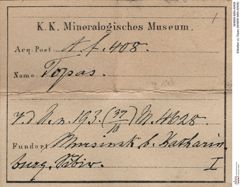 K. K. Mineralogisches Museum.
Acq. Post A. f. 408.
Name Topas.
193. (37/18) M. 4628
Fundort Mursinsk b. Katharin
burg, Sibir.
I